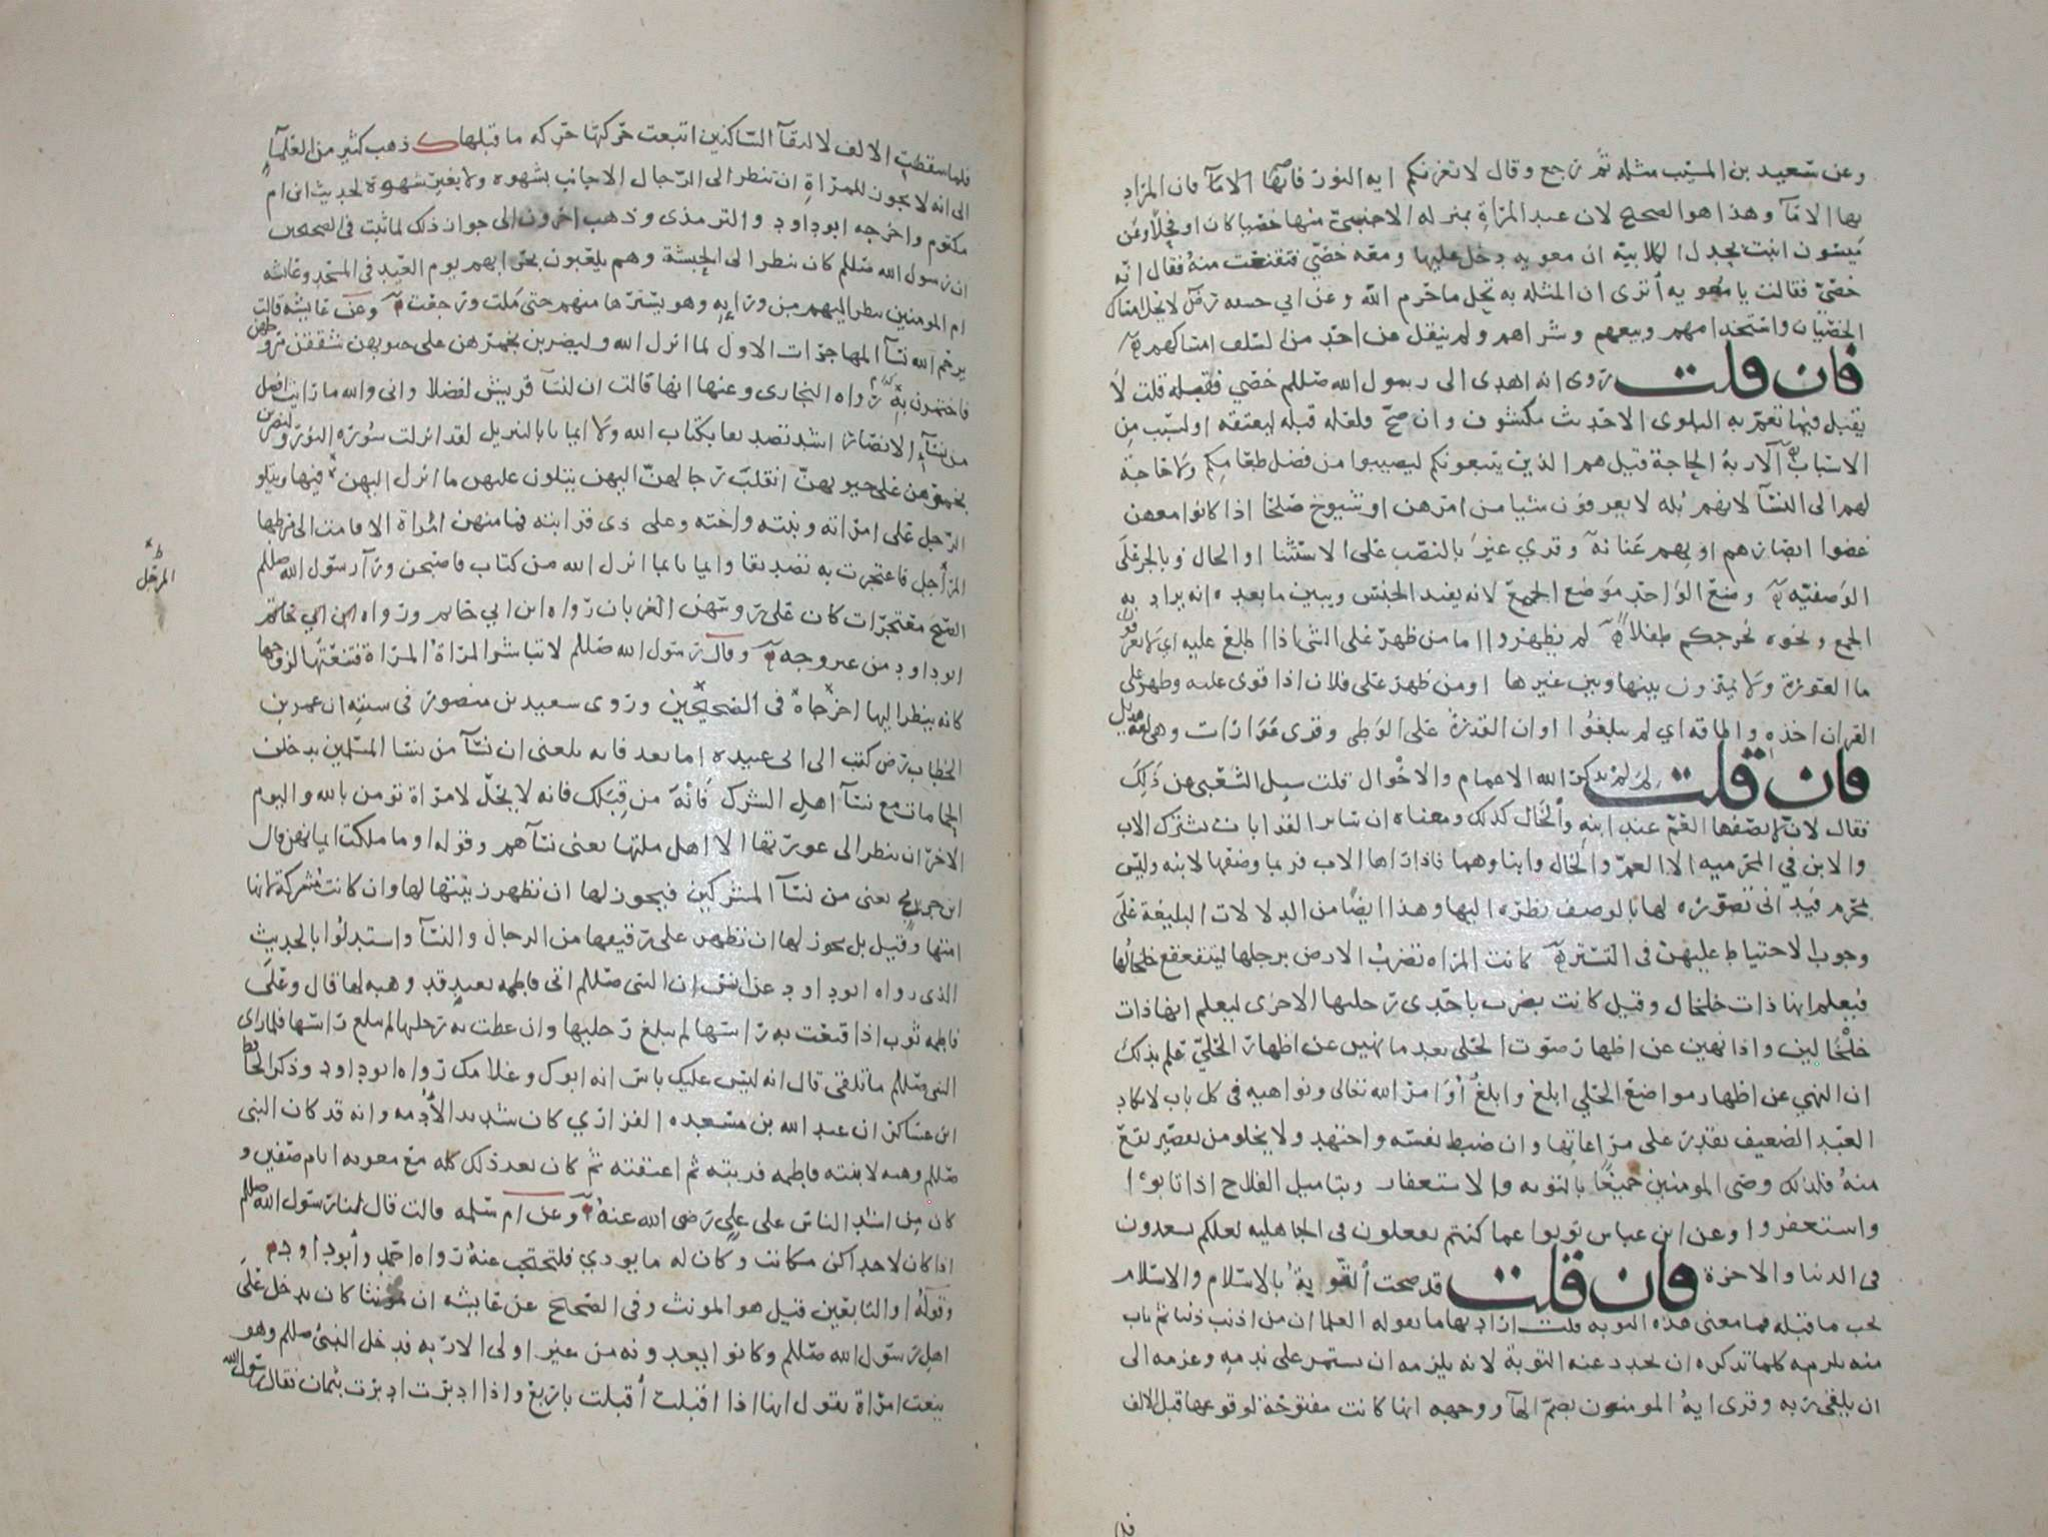 وعن سعيد بن المسيب مثله ثم رجع وقال لا تغرنكم اية النور فانها الاماء فان المراد
بها الامآ وهذا هو الصحيح لان عبد المرأة بمنزلة الاجنبي منها خصيا كان او فحلا وعن
ميسون ابنت بجدل الكلابية ان معويه دخل عليها ومعه خصي فتقنعت منه فقال انه
خصي فقالت يا معويه أترى ان المثله به تحل ما حرم الله وعن ابي حنيفه رض لا يحل امتاك
الخصيان واستخدامهم وبيعهم وشراهم ولم ينقل عن احد من السلف امتاكهم
فان قلت روى انه اهدى الى رسول الله صللم خصي فقبله قلت لا
يقبل فيما تعم به البلوى الا حديث مكشوف وان صح فلعله قبله ليعتقه او لسبب من
الاسباب الاربة الحاجة قيل هم الذين يتبعونكم ليصيبوا من فضل طعامكم ولا حاجة
لهم الى النسآ لانهم بله لا يعرفون شيا من امرهن او شيوخ صلحا اذا كانوا معهن
غضوا ابصارهم او بهم عنانة وقري غير بالنصب على الاستثنا او الحال وبالجر على
الوصفيه وضع الواحد موضع الجمع لانه يفيد الجنس ويبين ما بعده انه يراد به
الجمع ونحوه نخرجكم طفلا لم يظهروا اما من ظهر على الشي اذا اطلع عليه اي لا يعرفون
ما العورة ولا يميزون بينها وبين غيرها او من ظهر على فلان اذا قوى عليه وظهر على
القران اخذه واطاقه اي لم يبلغوا اوان القدرة على الوطي وقرى عورات وهى لغة هذيل
فان قلت لم لم يذكر الله الاعمام والاخوال قلت سيل الشعبي عن ذلك
فقال لان لا يصفها العم عند ابنه والخال كذلك ومعناه ان ساير القرابات يشترك الاب
والابن في المحرميه الا العم والخال وابناوهما فاذا راها الاب فربما وصفها لابنه وليس
بمحرم فيدانى تصوره لها بالوصف نظره اليها وهذا ايضا من الدلالات البليغة على
وجوب الاحتياط عليهن في التستر كانت المراه تضرب الارض برجلها ليتقعقع خلخالها
فيعلم انها ذات خلخال وقيل كانت يضرب باحدى رجليها الاخرى ليعلم انها ذات
خلخالين واذا نهين عن اظهار صوت الحلى بعد ما نهين عن اظهار الحلي علم بذلك
ان النهي عن اظهار مواضع الحلي ابلغ وابلغ أوامر الله تعالى ونواهيه في كل باب لا يكاد
العبد الضعيف يقدر على مراعاتها وان ضبط نفسه واجتهد ولا يخلو من تقصير يقع
منه فلذلك وصى المومنين جميعا بالتوبه والاستغفار وبتاميل الفلاح اذا تابوا
واستغفروا وعن ابن عباس توبوا عما كنتم تفعلون في الجاهليه لعلكم تسعدون
في الدنيا والاخرة فان قلت قد صحت التوبة بالاسلام والاسلام
يجب ما قبله فما معنى هذه التوبه قلت اراد بها ما يقوله العلما ان من اذنب ذنبا ثم تاب
منه يلزمه كلما تذكره ان يجدد عنه التوبة لانه يلزمه ان يستمر على ندمه وعزمه الى
ان يلقى ربه وقرى ايه المومنون بضم الهآ ووجهه انها كانت مفتوحة لوقوعها قبل الالف
فلما سقطت الالف لالتقآ الساكنين اتبعت حركتها حركه ما قبلها ذهب كثير من العلمآ
الى انه لا يجوز للمراة ان تنظر الى الرجال الاجانب بشهوه ولا بغير شهوة لحديث ابن ام
مكتوم واخرجه ابو داود والترمذى وذهب اخرون الى جواز ذلك لما ثبت في الصحيحين
ان رسول الله صللم كان ينظر الى الحبشة وهم يلعبون بحرابهم يوم العيد في المسجد وعائشه
ام المومنين ينظر اليهم من ورايه وهو يسترها منهم حتى ملت ورجعت وعن عايشه قالت
يرحم الله نسآ المهاجرات الاول لما انزل الله وليضربن بخمرهن على جيوبهن شققن مروطهن
فاختمرن به رواه البخارى وعنها انها قالت ان لنسآ قريش لفضلا وانى والله ما رايت افضل
من نسآ الانصار اشد تصديقا بكتاب الله ولا ايمانا بالتنزيل لقد انزلت سورة النور وليضربن
بخمرهن على جيوبهن انقلب رجالهن اليهن يتلون عليهن ما انزل اليهن فيها ويتلو
الرجل على امراته وبنته واخته وعلى ذى قرابته فما منهن امرأة الا قامت الى مرطها
المرأجل فاعتجرت به تصديقا وايمانا بما انزل الله من كتاب فاصبحن ورآ رسول الله صللم
الصبح معتجرات كان على روسهن الغربان رواه ابن ابي حاتم ورواه ابن ابي حاتم
ابو داود من غير وجه وقال رسول الله صللم لا تباشر المراة المراة فتنعتها لزوجها
كانه ينظر اليها اخرجاه في الصحيحين وروى سعيد بن منصور في سننه ان عمر بن
الخطاب رض كتب الى ابى عبيده اما بعد فانه بلغنى ان نسآ من نسا المسلمين يدخلن
الحمامات مع نسآ اهل الشرك فأنه من قبلك فانه لا يحل لامراة تومن بالله واليوم
الاخر ان ينظر الى عورتها الا اهل ملتها يعنى نسآهم وقوله او ما ملكت ايمانهن قال
ابن جريج يعنى من نسآ المشركين فيجوز لها ان تظهر زينتها لها وان كانت مشركة لانها
امتها وقيل بل يجوز لها ان تظهر على رقيقها من الرجال والنسآ واستدلوا بالحديث
الذى رواه ابو داود عن انس ان النبى صللم اتى فاطمه بعبد قد وهبه لها قال وعلى
فاطمه ثوب اذا قنعت به راسها لم يبلغ رجليها وان غطت به رجليها لم يبلغ راسها فلما راى
النبى صللم ما تلقى قال انه ليس عليك باس انه ابوك وغلامك رواه ابو داود وذكر الحافظ
ابن عساكر ان عبد الله بن مسعده الفزازي كان شديد الأدمه وانه قد كان النبى
صللم وهبه لابنته فاطمه فربته ثم اعتقته ثم كان بعد ذلك كله مع معويه ايام صفين و
كان من اشد الناس على علي رضى الله عنه وعن ام سلمه قالت قال لنا رسول الله صللم
اذا كان لاحداكن مكاتب وكان له ما يودي فلتحتجب عنه رواه احمد وأبو داود
وقوله او التابعين قيل هو المونث وفي الصحيح عن عايشه ان مونثا كان يدخل على
اهل رسول الله صللم وكانوا يعدونه من غير اولى الاربه فدخل النبي صللم وهو
ينعت امراة يقول انها اذا اقبلت أقبلت باربع واذا ادبرت ادبرت بثمان فقال رسول الله
المرجل